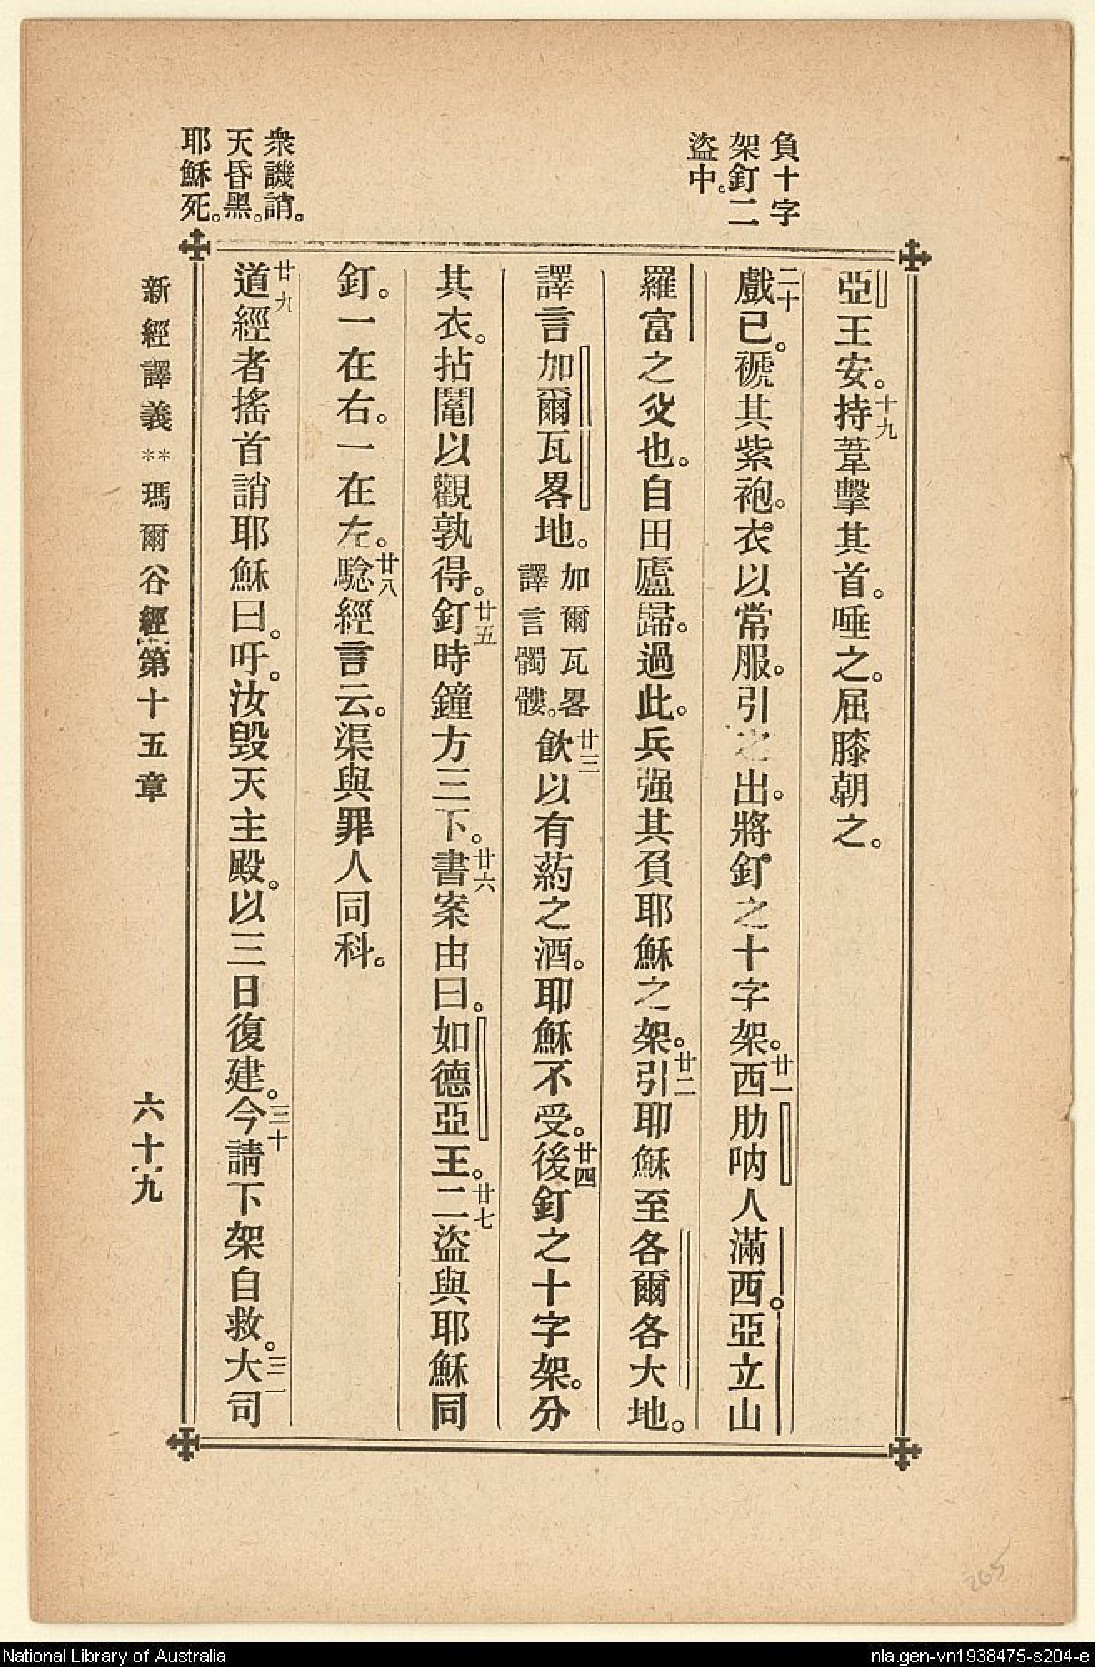 負十字
架釘二
盜中。
亞王安。十九持葦擊其首。唾之。屈膝朝之。
二十戲已。禠其紫袍。衣以常服。引之出。將釘之十字架。廿一西肋吶人滿西。亞立山
羅富之父也。自田廬歸。過此。兵强其負耶穌之架。廿二引耶穌至各爾各大地。
譯言加爾瓦畧地。加爾瓦畧譯言髑髏。廿三飲以有葯之酒。耶穌不受。廿四後釘之十字架。分
其衣。拈鬮以觀孰得。廿五釘時鐘方三下。廿六書案由曰。如德亞王。廿七二盜與耶穌同
釘。一在右。一在左。廿八騐經言云。渠與罪人同科。
廿九道經者搖首誚耶穌曰。吁。汝毀天主殿。以三日復建。三十今請下架自救。三一大司
衆譏誚。
天昏黑。
耶穌死。
新經譯義**瑪爾谷經第十五章 六十九
205
National Library of Australia
nla.gen-vn1938475-s204-e